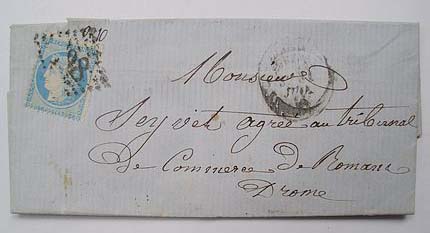 Monsieur
Seyvet agréé au tribunal
de Commerce de Romans
Drome